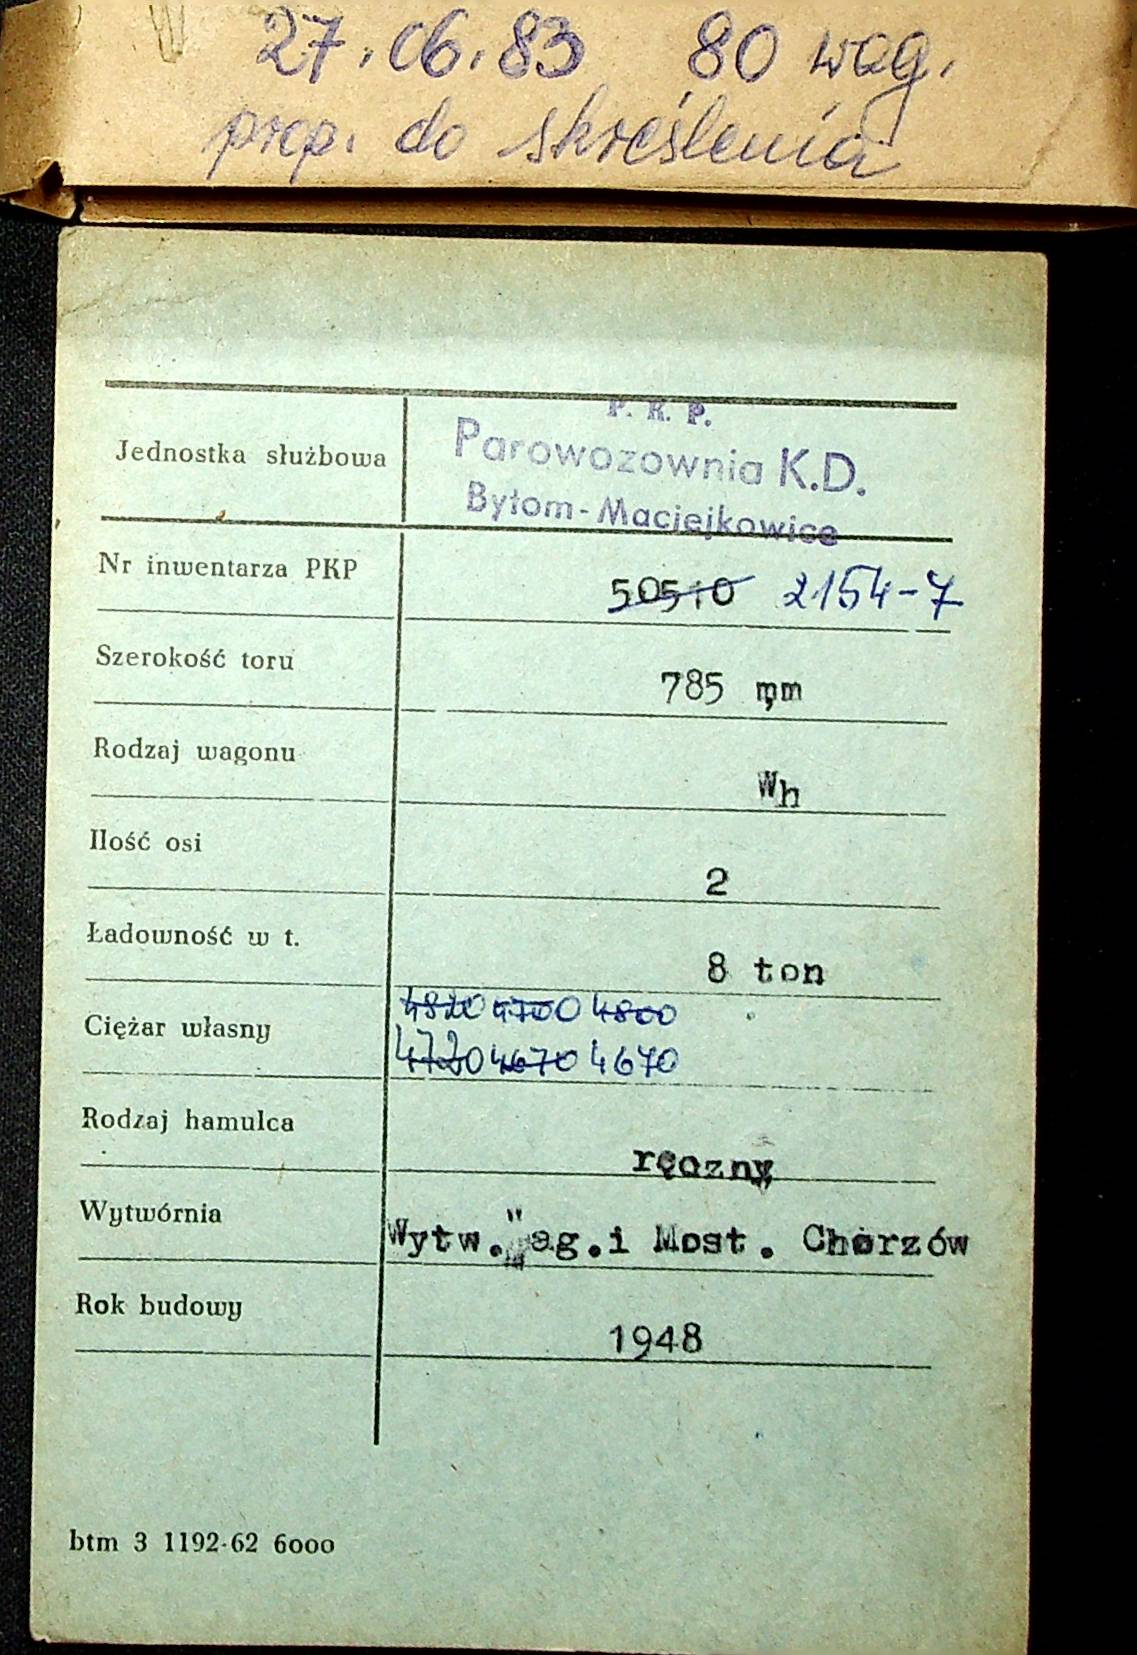 27.06.83 80 wag.
prop. do skreślenia
P. K. P.
Jednostka służbowa Parowozownia K.D.
Bytom-Maciejkowice
Nr inwentarza PKP 50510 2154-7
Szerokość toru 785 mm
Rodzaj wagonu Wh
Ilość osi 2
Ładowność w t. 8 ton
4820 4700 4800
Ciężar własny 4720 4670 4670
Rodzaj hamulca ręczny
Wytwórnia Wytw. Wag.i Most. Chorzów
Rok budowy 1948
btm 3 1192-62 6000